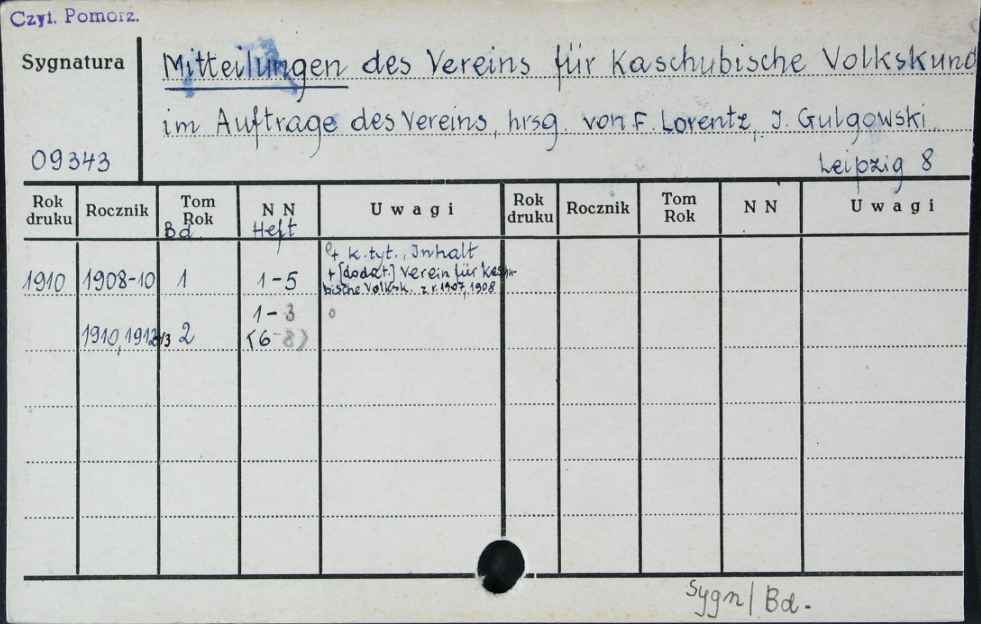 Czyt. Pomorz.
Sygnatura
Mitteilungen des Vereins für Kaschubische Volkskund
im Auftrage des Vereins, hrsg. von F. Lorentz, J. Gulgowski.
09343
Leipzig 8
Rok druku Rocznik Tom Rok N N Uwagi Rok druku Rocznik Tom Rok N N Uwagi
Bd. Heft
+ k. tyt., Inhalt
1910 1908-10 1 1-5 + [dodat.] Verein für Kaschu-
bische Volksk. z r. 1907, 1908
1-3
1910, 1912/13 2 (6-8)
Sygn/Bd.